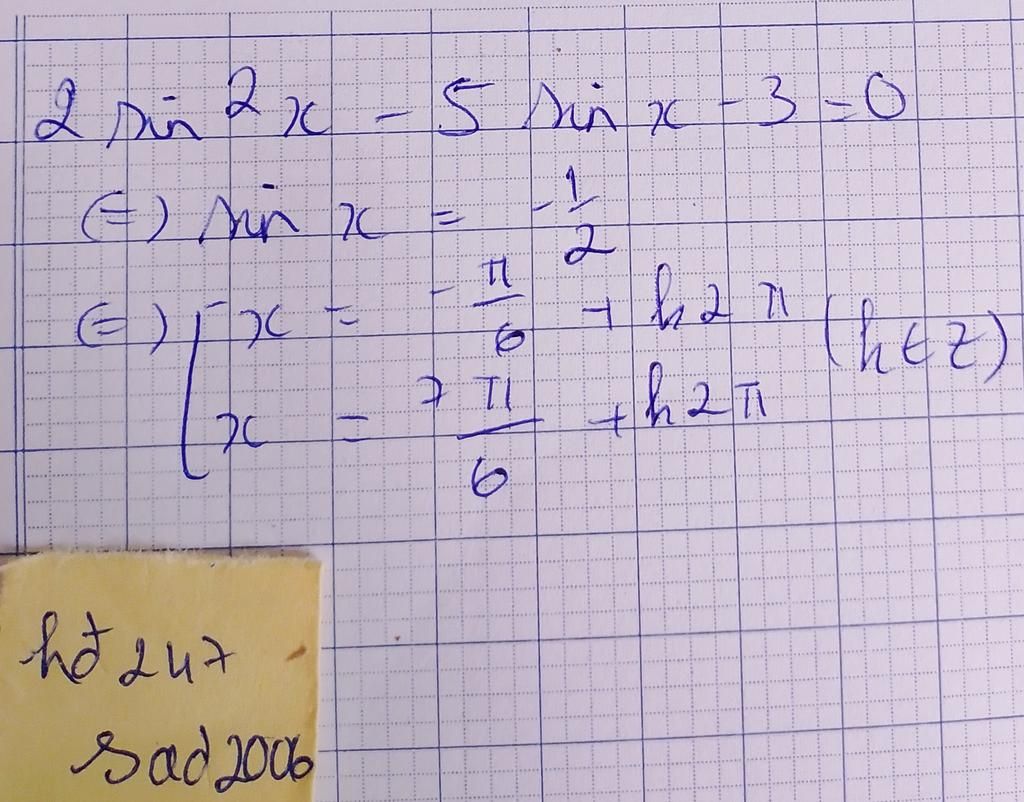 2 sin²x - 5 sin x - 3 = 0
(=) sin x = -1/2
(=) [ x = -π/6 + k2π
x = 7π/6 + k2π (k ∈ Z)
hđ247
sad2006